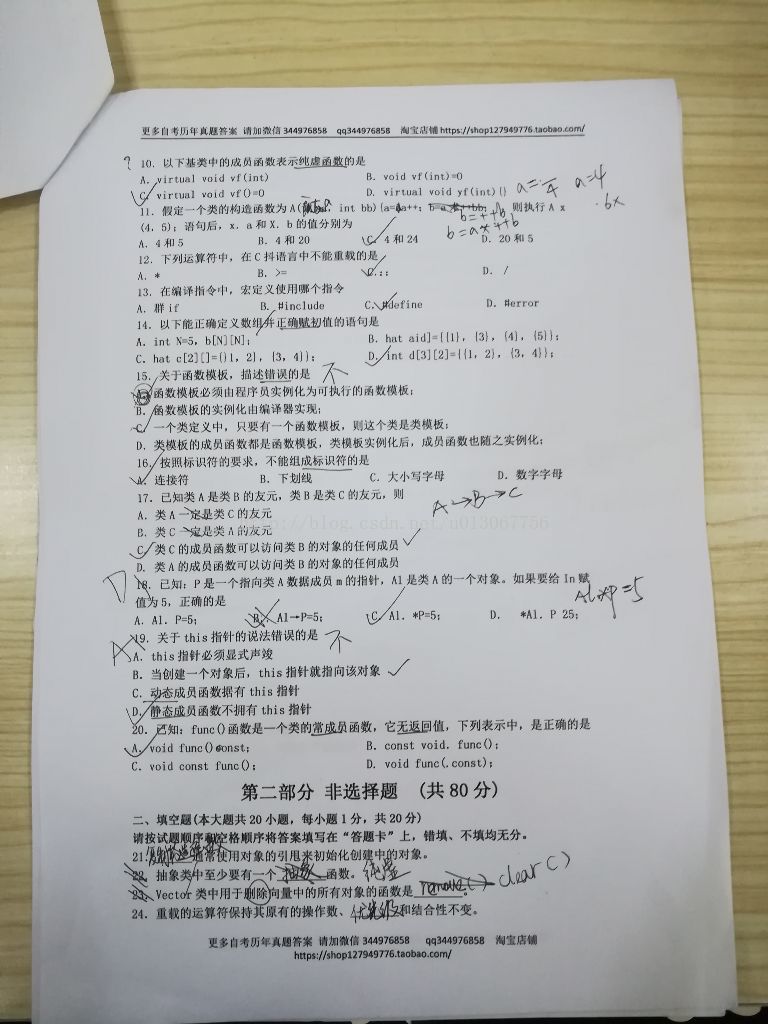 更多自考历年真题答案 请加微信 344976858 qq344976858 淘宝店铺 https://shop127949776.taobao.com/
? 10. 以下基类中的成员函数表示纯虚函数的是
A. virtual void vf(int) B. void vf(int)=0
C. virtual void vf()=0 D. virtual void yf(int){} a=4
11. 假定一个类的构造函数为 A(int a, int bb){a=a++; b=a*++b; 则执行 A x
b=++b
(4, 5); 语句后, x. a 和 X. b 的值分别为 b=a*++b
A. 4 和 5 B. 4 和 20 C. 4 和 24 D. 20 和 5
12. 下列运算符中, 在 C 抖语言中不能重载的是
A. * B. >= C. :: D. /
13. 在编译指令中, 宏定义使用哪个指令
A. 群 if B. #include C. #define D. #error
14. 以下能正确定义数组并正确赋初值的语句是
A. int N=5, b[N][N]; B. hat aid]={{1}, {3}, {4}, {5}};
C. hat c[2][]={}1, 2}, {3, 4}}; D. int d[3][2]={{1, 2}, {3, 4}};
15. 关于函数模板, 描述错误的是 不
A. 函数模板必须由程序员实例化为可执行的函数模板;
B. 函数模板的实例化由编译器实现;
C. 一个类定义中, 只要有一个函数模板, 则这个类是类模板;
D. 类模板的成员函数都是函数模板, 类模板实例化后, 成员函数也随之实例化;
16. 按照标识符的要求, 不能组成标识符的是
A. 连接符 B. 下划线 C. 大小写字母 D. 数字字母
17. 已知类 A 是类 B 的友元, 类 B 是类 C 的友元, 则 A→B→C
A. 类 A 一定是类 C 的友元
http://blog.csdn.net/u013067756
B. 类 C 一定是类 A 的友元
C. 类 C 的成员函数可以访问类 B 的对象的任何成员
D. 类 A 的成员函数可以访问类 B 的对象的任何成员
D 18. 已知: P 是一个指向类 A 数据成员 m 的指针, A1 是类 A 的一个对象。如果要给 In 赋
值为 5, 正确的是 A1.*p=5
A. A1. P=5; B. A1→P=5; C. A1. *P=5; D. *A1. P 25;
A 19. 关于 this 指针的说法错误的是 不
A. this 指针必须显式声竣
B. 当创建一个对象后, this 指针就指向该对象
C. 动态成员函数据有 this 指针
D. 静态成员函数不拥有 this 指针
20. 已知: func()函数是一个类的常成员函数, 它无返回值, 下列表示中, 是正确的是
A. void func()const; B. const void. func();
C. void const func(); D. void func(.const);
第二部分 非选择题 (共 80 分)
二、填空题(本大题共 20 小题, 每小题 1 分, 共 20 分)
请按试题顺序和空格顺序将答案填写在“答题卡”上, 错填、不填均无分。
21. 复制构造函数 通常使用对象的引用来初始化创建中的对象。
22. 抽象类中至少要有一个 抽象 函数。 纯虚
23. Vector 类中用于删除向量中的所有对象的函数是 remove() clear()
24. 重载的运算符保持其原有的操作数、优先级 和结合性不变。
更多自考历年真题答案 请加微信 344976858 qq344976858 淘宝店铺
https://shop127949776.taobao.com/